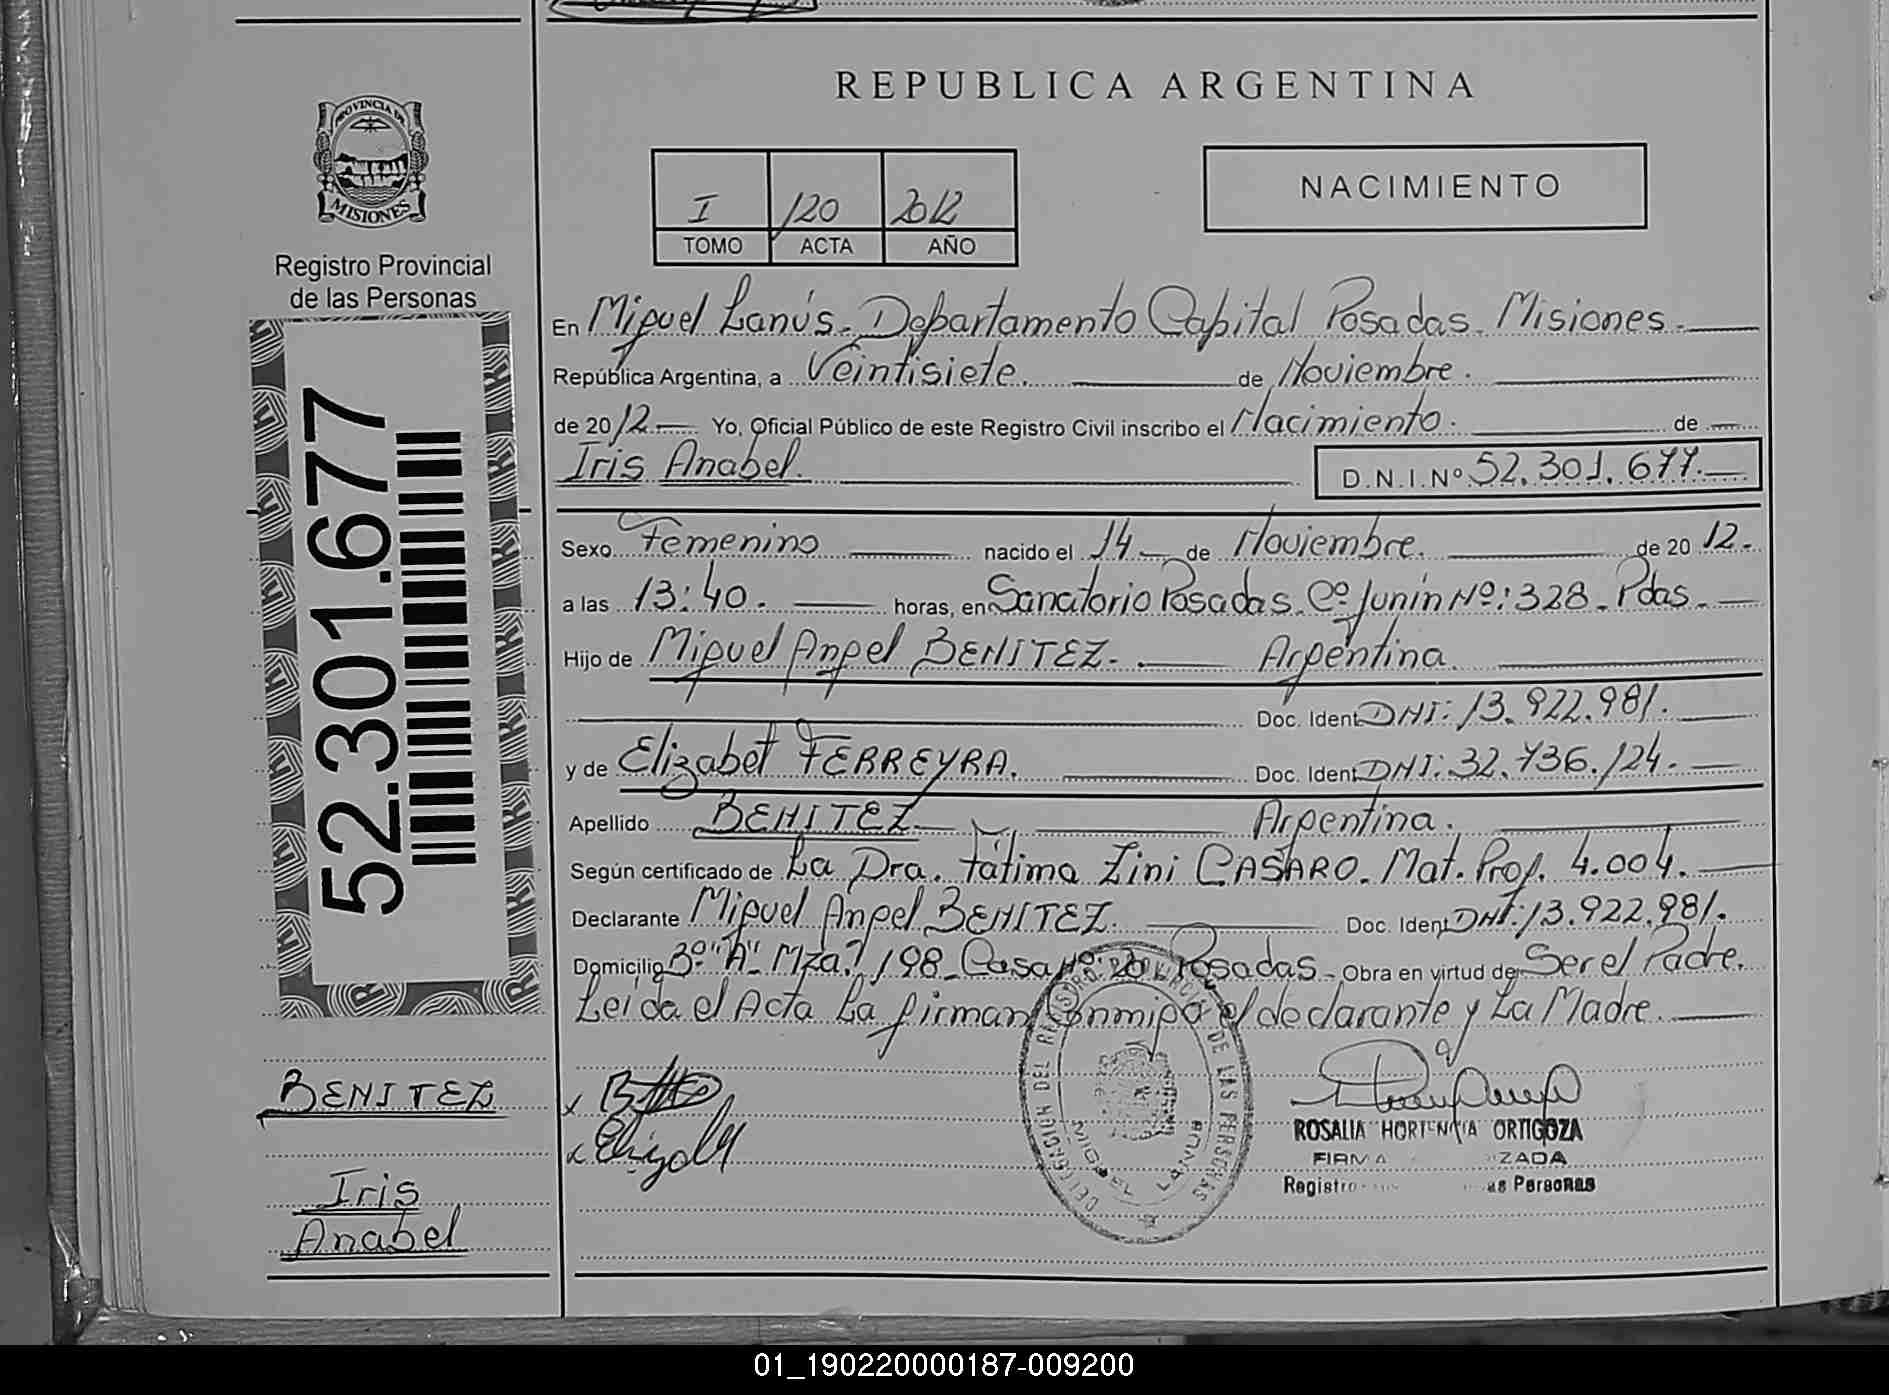 REPUBLICA ARGENTINA
PROVINCIA DE
MISIONES
Registro Provincial
de las Personas
52.301.677
I /120 2012
TOMO ACTA AÑO
NACIMIENTO
En Miguel Lanús. Departamento Capital Posadas. Misiones.
República Argentina, a Veintisiete. de Noviembre.
de 2012 Yo, Oficial Público de este Registro Civil inscribo el Nacimiento. de
Iris Anabel. D.N.I.Nº 52.301.677.
Sexo Femenino nacido el 14 de Noviembre. de 2012.
a las 13:40. horas, en Sanatorio Posadas. Cº Junín Nº: 328. Pdas.
Hijo de Miguel Angel BENITEZ. Argentina.
Doc. Ident DNI: 13.922.981.
y de Elizabet FERREYRA. Doc. Ident DNI: 32.736.124.
Apellido BENITEZ Argentina.
Según certificado de La Dra. Fátima Zini CASARO. Mat. Prof. 4.004.
Declarante Miguel Angel BENITEZ. Doc. Ident DNI: 13.922.981.
Domicilio Bº "A" Mza. 198 Casa Nº 20 Posadas. Obra en virtud de Ser el Padre.
Leída el Acta La firman Conmigo el declarante y La Madre.
BENITEZ
Iris
Anabel
DELEGACION DEL REGISTRO PROVINCIAL DE LAS PERSONAS
MIGUEL LANUS
ROSALIA HORTENCIA ORTIGOZA
FIRMA ZADA
Registro as Personas
01_190220000187-009200